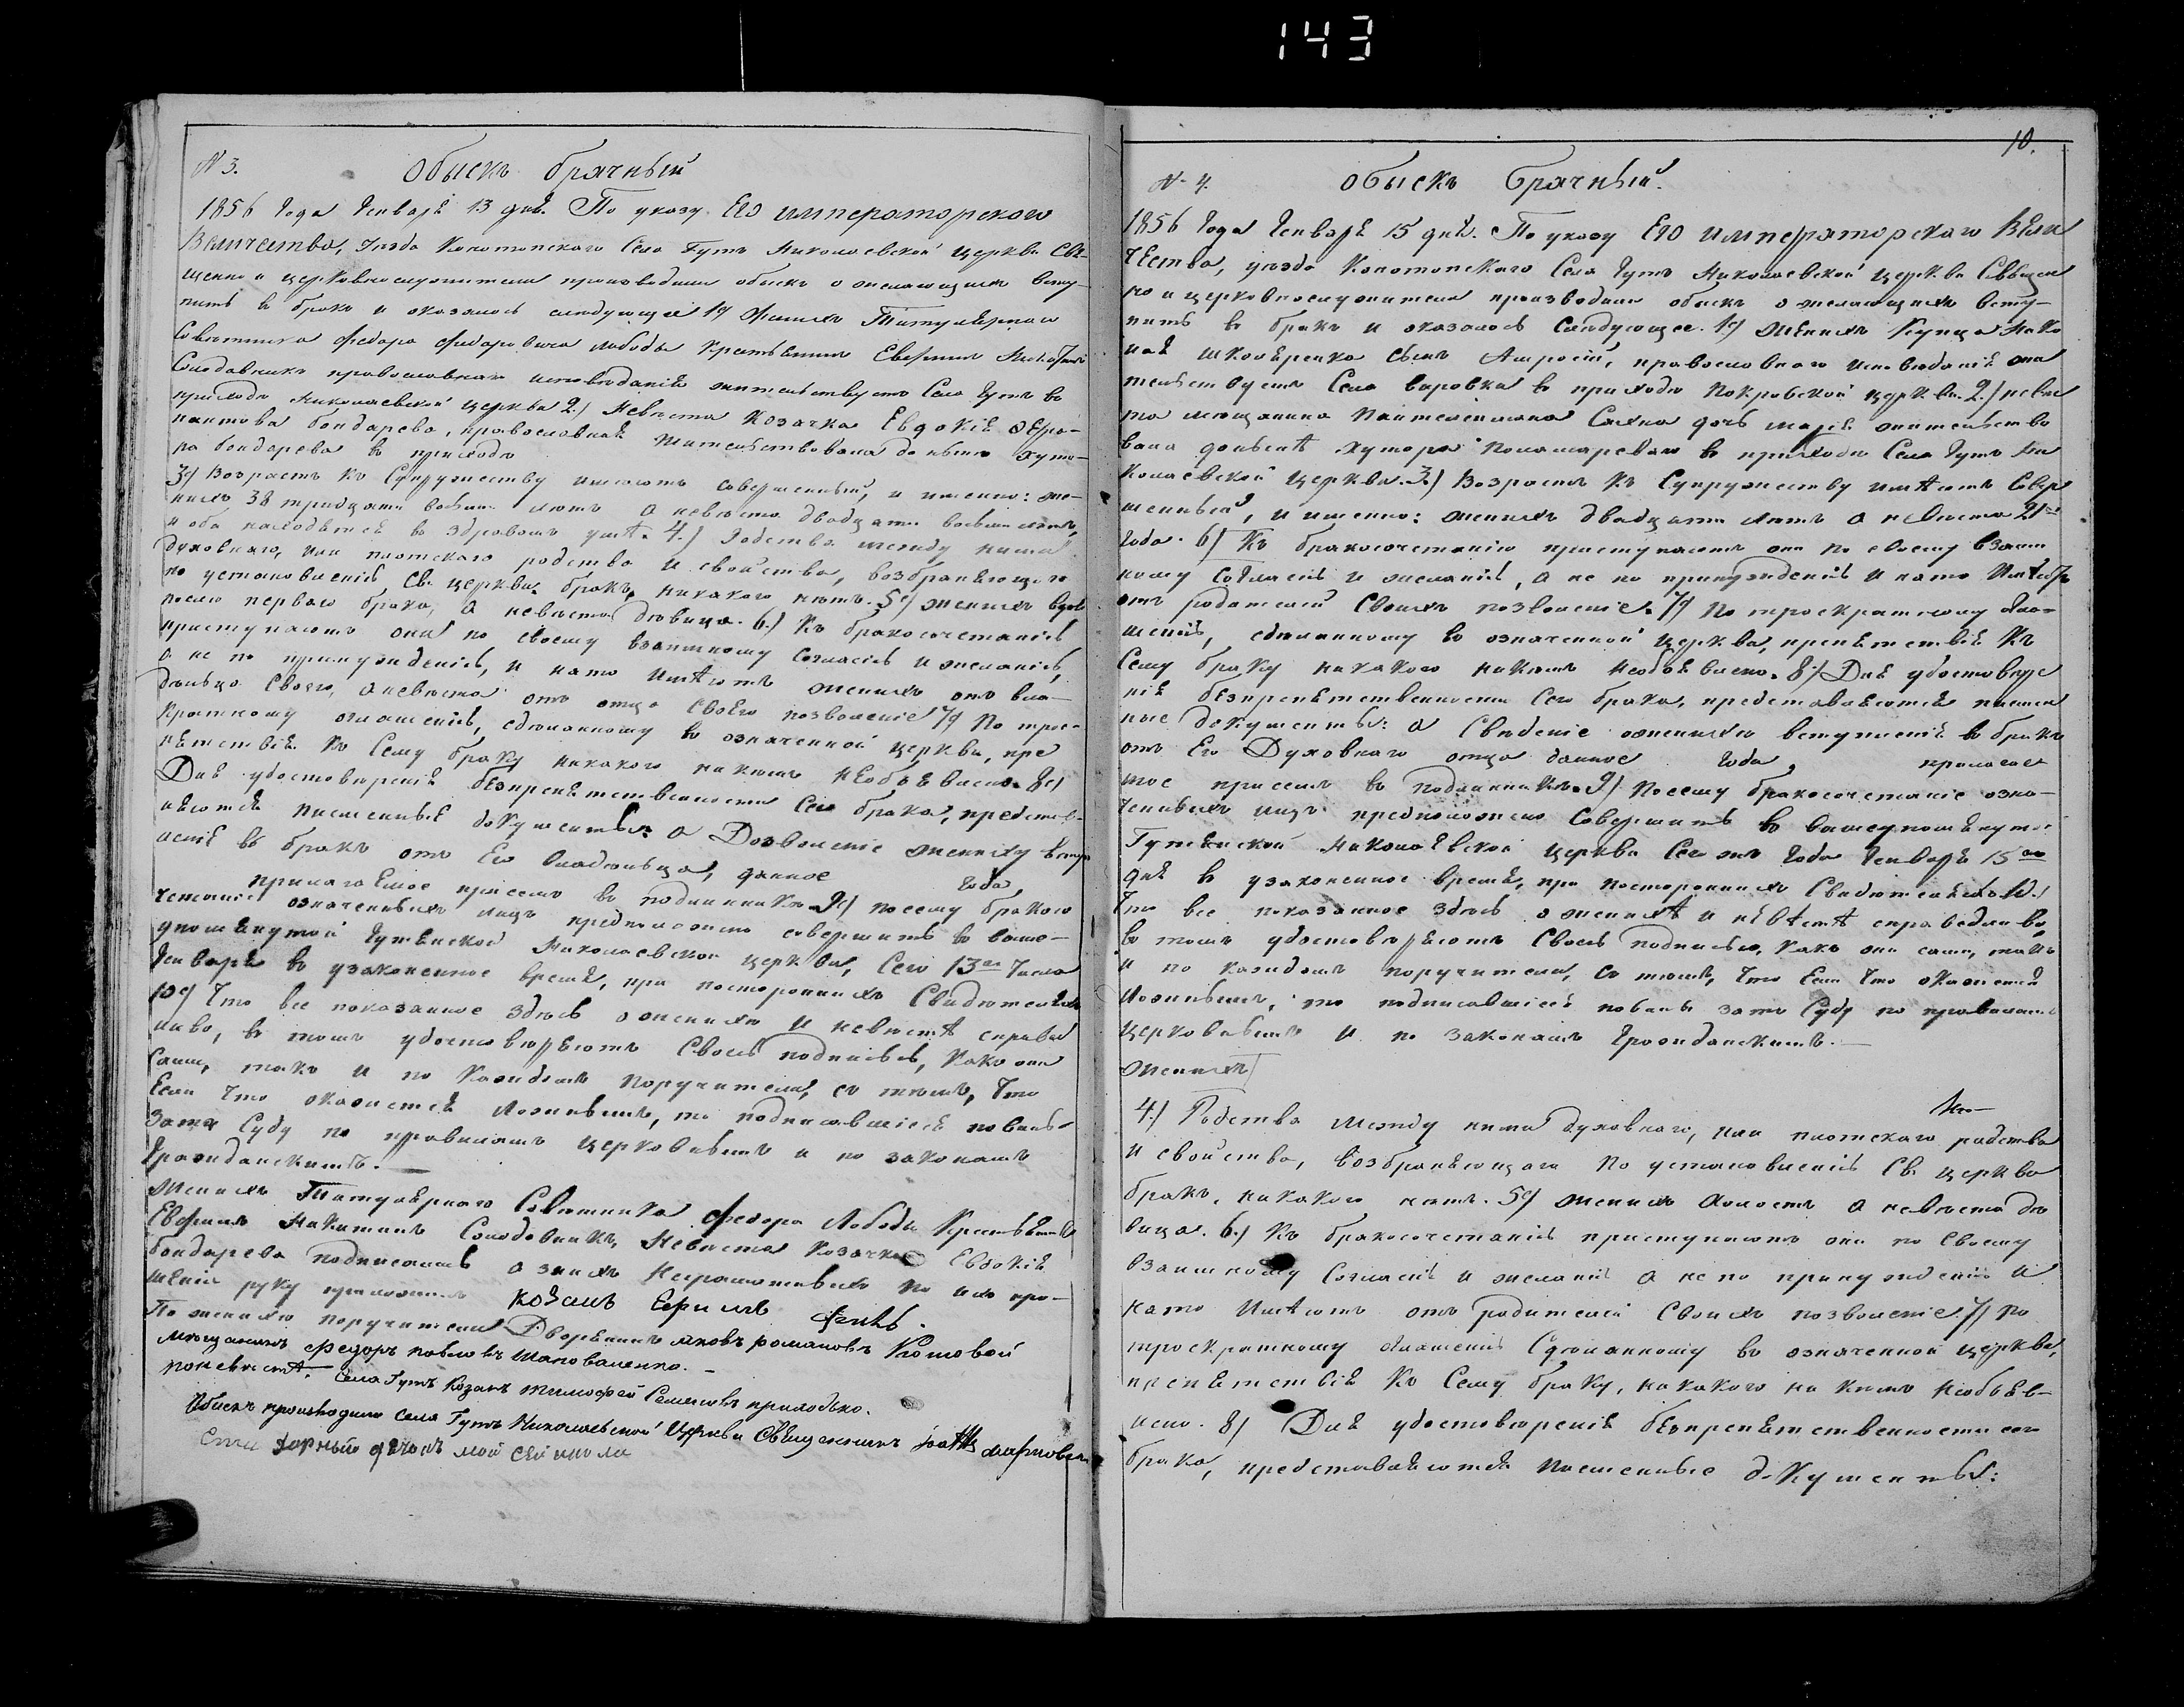 143
N 3. Обыскъ брачный
1856 года Генваря 13 дня. По указу Его императорского
Величества, уезда Конотопского Села Гутъ Николаевской церкви Свя-
щенно и церковнослужители производили обыскъ о желающихъ всту-
пить в бракъ и оказалось следующее 1е) Женихъ Титулярного
Советника Федора Федоровича Лободы Крестьянинъ Евфимъ Никитинъ
Солодовникъ православнаго исповеданія жительствуетъ Села Гутъ во
приходе Николаевской церкви 2.) Невеста Козачка Евдокія
Бондарева, православная жительствовала доныне хуто-
ра Бондарева в приходе
3е) Возрастъ къ Супружеству имеютъ совершенный, и именно: же-
нихъ 38 тридцати восьми летъ а невеста двадцати восьми летъ,
и оба находятся въ здравомъ умѣ. 4.) Родства между ними
духовнаго, или плотскаго родства и свойства, возбраняющаго
по установленію Св. церкви бракъ, никакого нетъ. 5е) Женихъ вдовъ
после перваго брака, а невеста девица. 6.) Къ бракосочетанію
приступаютъ они по своему взаимному согласію и желанію,
а не по принужденію, и нато имѣютъ женихъ отъ вла-
дельца своего, а невеста отъ отца своего позволеніе 7е) По трое-
кратному оглашенію, сделанному во означенной церкви, пре-
пятствія къ Сему браку никакого никемъ необъявлено. 8е)
Для удостоверенія безпрепятственности Сего брака, представ-
ляются письменные документы: а Дозволеніе жениху вступ-
ленія въ бракъ отъ Его владельца, данное года,
прилагаемое присемъ въ подлиннике 9е) посему бракосо-
четаніе означенныхъ лицъ предположено совершить во выше-
упомянутой Гутянской Николаевской церкви, Сего 13го числа
Генваря въ узаконенное время, при постороннихъ Свидетеляхъ
10е) Что все показанное здесь о женихе и невестѣ справед-
ливо, въ томъ удостоверяютъ Своею подписью, какъ они
сами, такъ и по каждомъ поручители, съ темъ, что
Если что окажется ложнымъ, то подписавшіеся повинны
зато Суду по правиламъ церковнымъ и по законамъ
Гражданскимъ.
Женихъ Титулярного Советника Федора Лободы Крестьянинъ
Евфимъ Никитинъ Солодовникъ, Невеста Козачка Евдокія
Бондарева подписались а за нихъ неграмотныхъ по ихъ про-
шенію руку приложилъ козакъ Ефимъ
По женихе поручители Дворянинъ яковъ романовъ Кошовой
мещанинъ федоръ павловъ Шаповаленко.
поневестѣ. Села Гутъ Козакъ тимофей Семеновъ приходько.
Обыскъ производилъ села Гутъ Николаевской Церкви Священникъ

10.
N. 4. Обыскъ брачный.
1856 года Генваря 15 дня. По указу Его императорскаго Вели
чества, уезда Конотопского Села Гутъ Николаевской церкви Священ
но и церковнослужители производили обыскъ о желающихъ всту-
пить въ бракъ и оказалось Следующее. 1е) Женихъ Купца Нико
лая Шкляренка сынъ Амвросій, православного исповеданія жи
тельствуетъ Села варовка в приходе Покровской церкви. 2.) невес
та мещанина Пантелеимона Сахна дочь марія жительство
вала доныне Хутора Пономарева в приходе Села Гутъ Ни
колаевской церкви. 3.) Возрастъ къ Супружеству имѣютъ Совер
шенный, и именно: женихъ двадцати летъ а невеста 21го
года. 6) Къ бракосочетанію приступаютъ они по своему взаим
ному согласію и желанію, а не по принужденію и нато имѣютъ
отъ родителей Своихъ позволеніе. 7е) По троекратному огла-
шенію, сделанному во означенной церкви, препятствія къ
Сему браку никакого никемъ необъявлено. 8) Для удостовере
нія безпрепятственности Сего брака, представляются письмен
ные документы: а Сведеніе о женихе вступленія в бракъ
отъ Его Духовнаго отца данное года, прилагае
мое присемъ въ подлиннике. 9) Посему бракосочетаніе озна-
ченныхъ лицъ предположено Совершить въ вышеупомянутой
Гутянской Николаевской церкви Сего жъ года Генваря 15го
дня въ узаконенное время, при постороннихъ Свидетеляхъ 10.)
Что все показанное здесь о женихѣ и невѣстѣ справедливо,
въ томъ удостоверяютъ Своею подписью, какъ они сами, такъ
и по каждомъ поручители, съ темъ, что Если что окажется
ложнымъ, то подписавшіеся повинны зато Суду по правиламъ
церковнымъ и по законамъ Гражданскимъ.
Женихъ
4.) Родства между ними духовнаго, или плотскаго родства
и свойства, возбраняющаго по установленію Св. церкви
бракъ, никакого нетъ. 5е) Женихъ холостъ а невеста де
вица. 6.) Къ бракосочетанію приступаютъ они по Своему
взаимному Согласію и желанію а не по принужденію и
нато имѣютъ отъ родителей Своихъ позволеніе. 7) По
троекратному оглашенію Сделанному во означенной церкви,
препятствія къ Сему браку, никакого никемъ необъяв-
лено. 8) Для удостоверенія безпрепятственности сего
брака, представляются письменные документы: